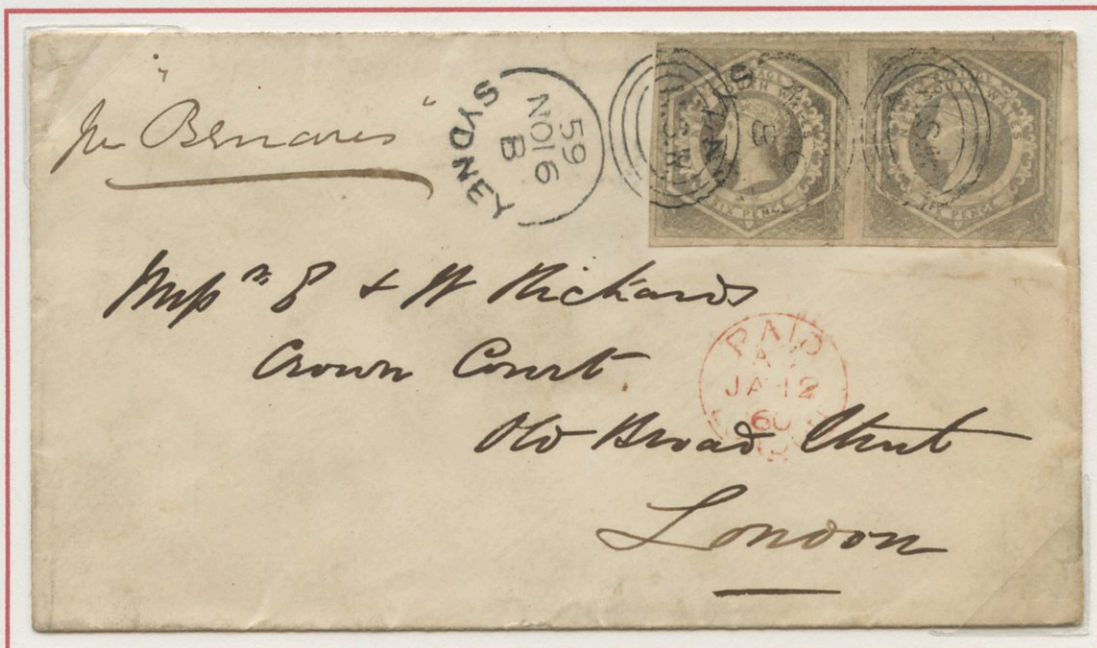 per "Benares"
SYDNEY
59
NO 16
B
SOUTH WALES
SIX PENCE
SIX PENCE
Mess rs E & W Rickards
Crown Court
Old Broad Street
London
PAID
JA 12
60